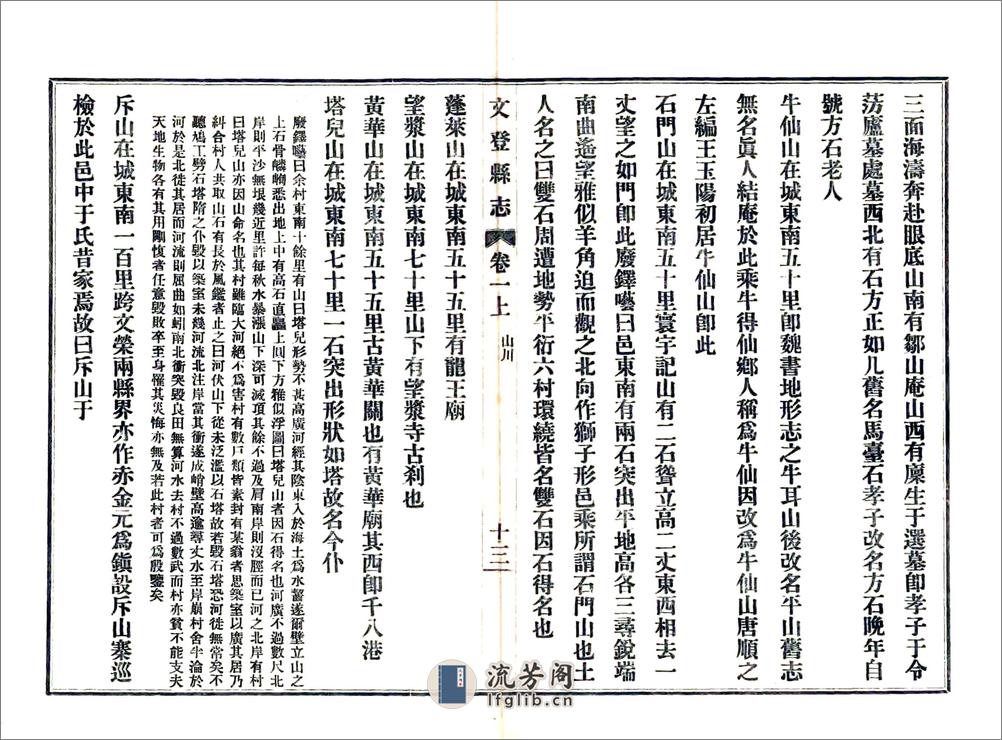 三面海濤奔赴眼底山南有鄒山庵山西有廩生于選墓即孝子于令
蒡廬墓處墓西北有石方正如几舊名馬臺石孝子改名方石晚年自
號方石老人
牛仙山在城東南五十里即魏書地形志之牛耳山後改名平山舊志
無名眞人結庵於此乘牛得仙鄉人稱爲牛仙因改爲牛仙山唐順之
左編王玉陽初居牛仙山即此
石門山在城東南五十里寰宇記山有二石聳立高二丈東西相去一
丈望之如門即此廢鐸囈曰邑東南有兩石突出平地高各三尋銳端
南曲遙望雅似羊角迫而觀之北向作獅子形邑乘所謂石門山也土
人名之曰雙石周遭地勢平衍六村環繞皆名雙石因石得名也
文登縣志 卷一上 山川 十三
蓬萊山在城東南五十五里有龍王廟
望漿山在城東南七十里山下有望漿寺古刹也
黃華山在城東南五十五里古黃華關也有黃華廟其西即千八港
塔兒山在城東南七十里一石突出形狀如塔故名今仆
廢鐸囈曰余村東南十餘里有山曰塔兒形勢不甚高廣河經其陰東入於海土爲水齧遂爾壁立山之
上石骨轔峋悉出地上中有高石直矗上圓下方雅似浮圖曰塔兒山者因石得名也河廣不過數尺北
岸則平沙無垠幾近里許每秋水暴漲山下深可滅頂其餘不過及肩南岸則沒脛而已河之北岸有村
曰塔兒山亦因山命名也其村雖臨大河絕不爲害村有數戶類皆素封有某翁者思築室以廣其居乃
糾合村人共取山石有長於風鑑者止之曰河伏山下從未泛濫以石塔故若毀石塔恐河徙無常矣不
聽鳩工劈石塔隋之仆毀以築室未幾河流北注岸當其衝遂成峭壁高逾尋丈水至岸崩村舍半淪於
河於是北徙其居而河流則屈曲如蚓南北衝突毀良田無算河水去村不過數武而村亦貧不能支夫
天地生物各有其用剛愎者任意毀敗卒至身罹其災悔亦無及若此村者可爲殷鑒矣
斥山在城東南一百里跨文榮兩縣界亦作赤金元爲鎭設斥山寨巡
檢於此邑中于氏昔家焉故曰斥山于
流芳阁
lfglib.cn